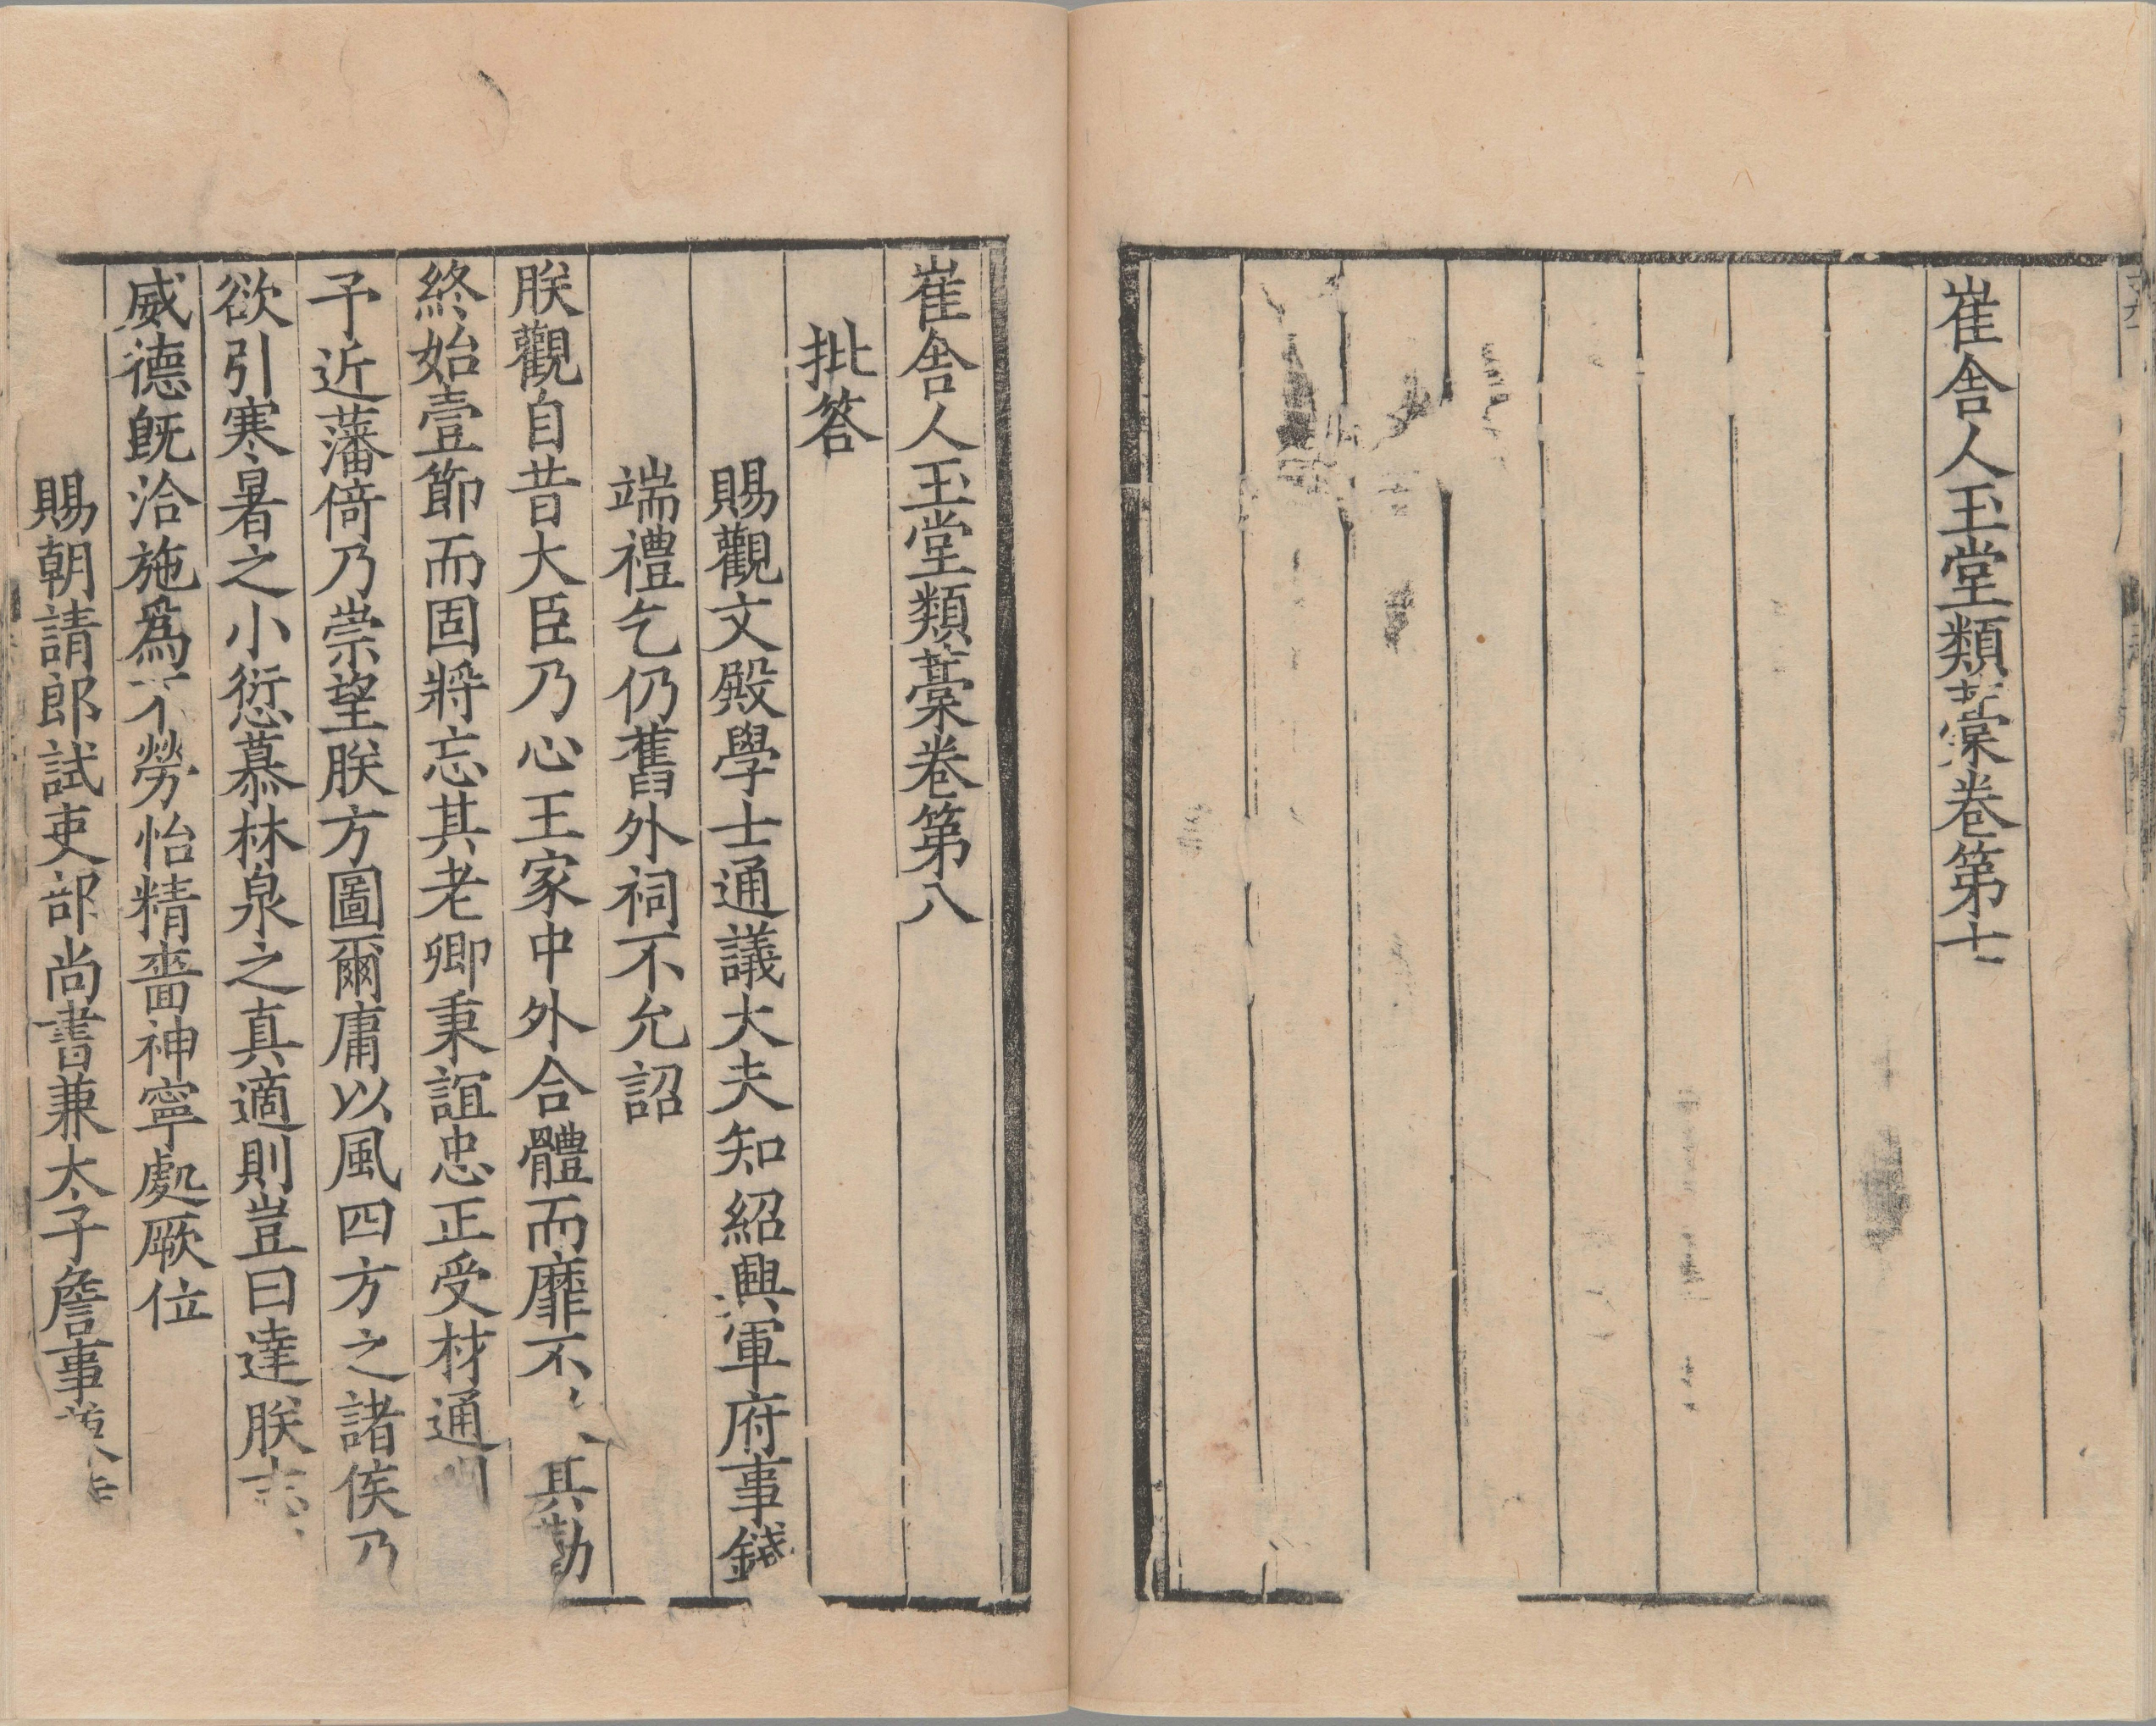 崔舍人玉堂類藁卷第七
崔舍人玉堂類藁卷第八
批答
賜觀文殿學士通議大夫知紹興軍府事錢
端禮乞仍舊外祠不允詔
朕觀自昔大臣乃心王家中外合體而靡不其勤
終始壹節而固將忘其老卿秉誼忠正受材通
予近藩倚乃崇望朕方圖爾庸以風四方之諸侯乃
欲引寒暑之小愆慕林泉之真適則豈曰達朕志
威德旣洽施爲不勞怡精嗇神寧處厥位
賜朝請郎試吏部尚書兼太子詹事兼